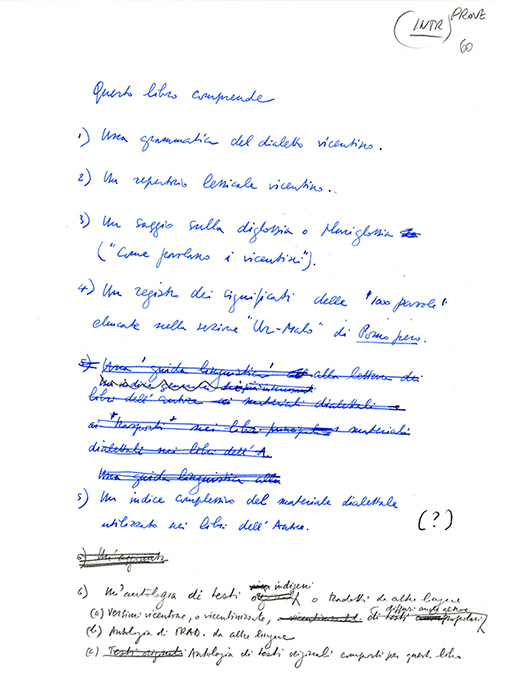 (INTR) PROVE
60
Questo libro comprende
1) Una grammatica del dialetto vicentino.
2) Un repertorio lessicale vicentino.
3) Un saggio sulla diglossia o Pluriglossia
("Come parlano i vicentini").
4) Un registro dei significati delle "100 parole"
elencate nella sezione "Ur-Malo" di Pomo pero.
5) Una 'guida linguistica' alla lettura dei
libri dell'autore ai materiali dialettali e
ai "trasporti" nei libri materiali
dialettali nei libri dell'A.
Una guida linguistica alla
5) Un indice complessivo del materiale dialettale
utilizzato nei libri dell'Autore. (?)
6) Un'aggiunta
6) Un'antologia di testi indigeni o tradotti da altre lingue
(a) Versioni vicentine, o vicentinizzate, di testi popolari
(b) Antologia di TRAD. da altre lingue
(c) Testi originali Antologia di testi originali composti per questo libro